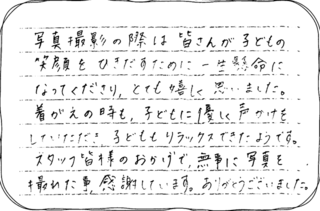 写真撮影の際は皆さんが子どもの
笑顔をひきだすために一生懸命に
なってくださり、とても嬉しく思いました。
着がえの時も、子どもに優しく声かけを
していただき子どももリラックスできたようです。
スタッフ皆様のおかげで、無事に写真を
撮れた事、感謝しています。ありがとうございました。